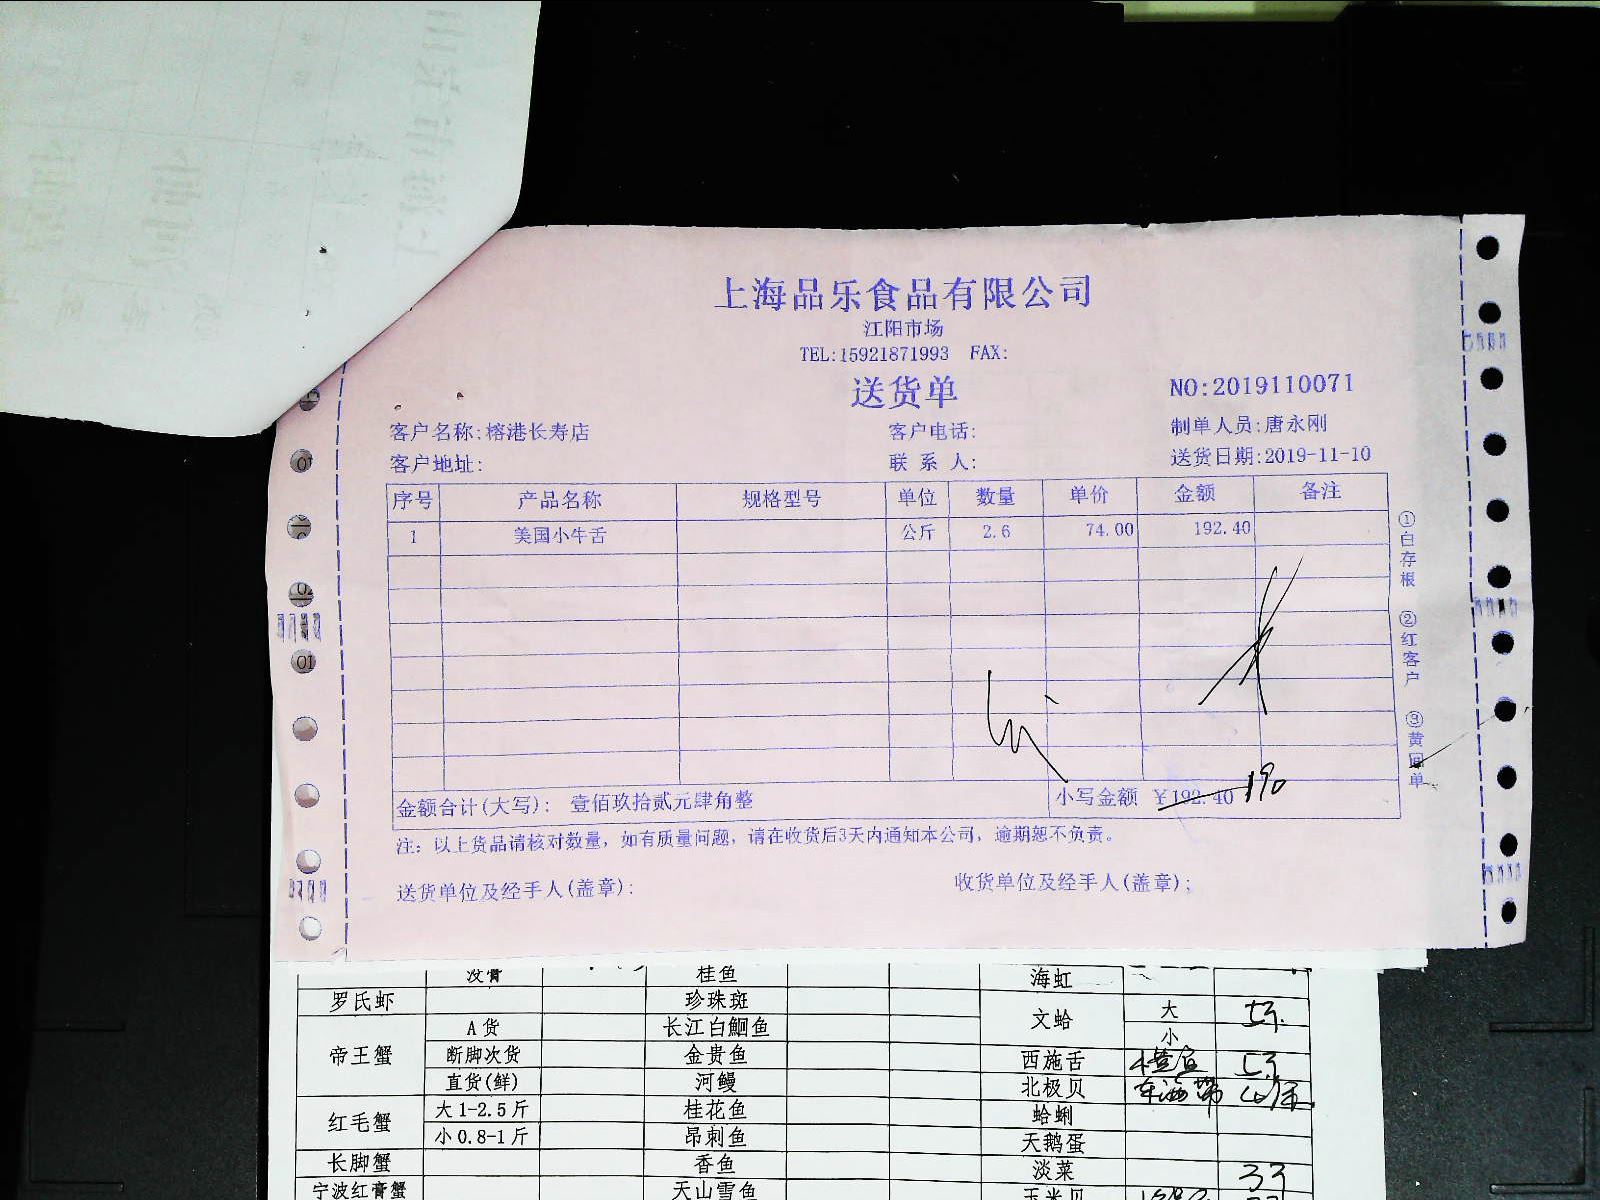 上海品乐食品有限公司
江阳市场
TEL:15921871993 FAX:
送货单
NO:2019110071
客户名称:榕港长寿店 客户电话: 制单人员:唐永刚
客户地址: 联系人: 送货日期:2019-11-10
序号 产品名称 规格型号 单位 数量 单价 金额 备注
1 美国小牛舌 公斤 2.6 74.00 192.40
①白存根 ②红客户 ③黄回单
金额合计(大写): 壹佰玖拾贰元肆角整 小写金额 ¥192.40 190
注: 以上货品请核对数量, 如有质量问题, 请在收货后3天内通知本公司, 逾期恕不负责。
送货单位及经手人(盖章): 收货单位及经手人(盖章);
没膏 桂鱼 海虹
罗氏虾 珍珠斑 文蛤 大
帝王蟹 A货 长江白鮰鱼 小
断脚次货 金贵鱼 西施舌
直货(鲜) 河鳗 北极贝
红毛蟹 大1-2.5斤 桂花鱼 蛤蜊
小0.8-1斤 昂刺鱼 天鹅蛋
长脚蟹 香鱼 淡菜 33
宁波红膏蟹 天山雪鱼 玉米贝